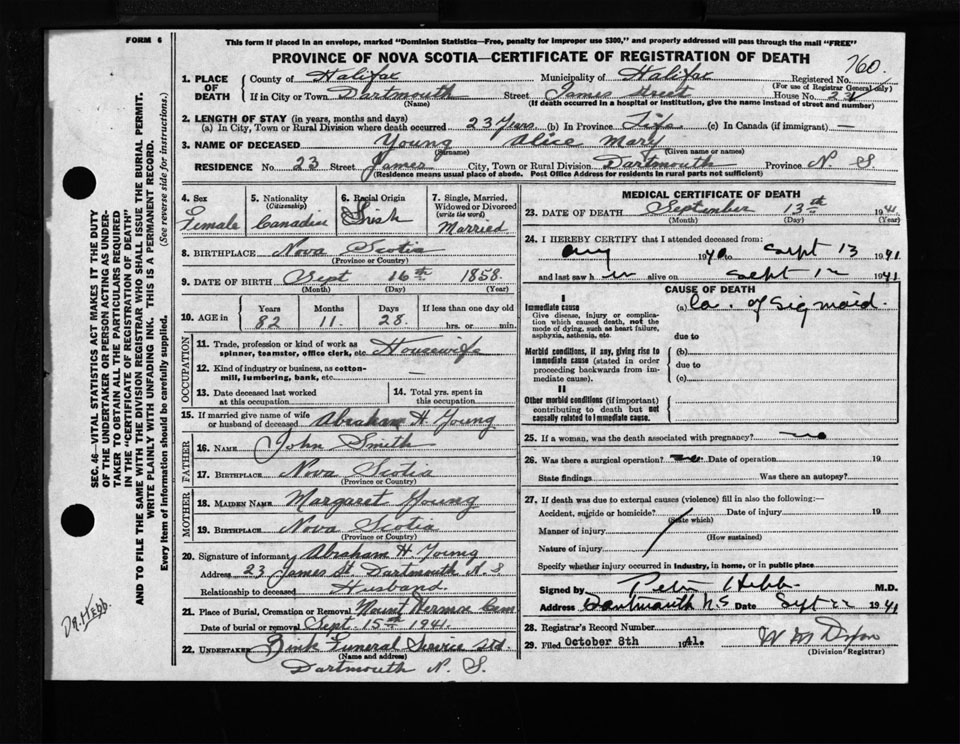 FORM 6
This form if placed in an envelope, marked "Dominion Statistics—Free, penalty for improper use $300," and properly addressed will pass through the mail "FREE"
PROVINCE OF NOVA SCOTIA—CERTIFICATE OF REGISTRATION OF DEATH
760.
1. PLACE OF DEATH
County of Halifax Municipality of Halifax Registered No.
(For use of Registrar General only)
If in City or Town Dartmouth Street James Street House No. 23
(Name) (If death occurred in a hospital or institution, give the name instead of street and number)
2. LENGTH OF STAY (in years, months and days)
(a) In City, Town or Rural Division where death occurred 23 Years (b) In Province Life (c) In Canada (if immigrant) —
3. NAME OF DECEASED Young Alice Mary
(Surname) (Given name or names)
RESIDENCE No. 23 Street James City, Town or Rural Division Dartmouth Province N. S
(Residence means usual place of abode. Post Office Address for residents in rural parts not sufficient)
4. Sex
Female
5. Nationality
(Citizenship)
Canadian
6. Racial Origin
Irish
7. Single, Married, Widowed or Divorced
(write the word)
Married
8. BIRTHPLACE Nova Scotia
(Province or Country)
9. DATE OF BIRTH Sept 16th 1858.
(Month) (Day) (Year)
10. AGE in
Years Months Days If less than one day old
82 11 28. hrs. or min.
OCCUPATION
11. Trade, profession or kind of work as spinner, teamster, office clerk, etc. Housewife
12. Kind of industry or business, as cotton-mill, lumbering, bank, etc. —
13. Date deceased last worked at this occupation
14. Total yrs. spent in this occupation
15. If married give name of wife or husband of deceased Abraham H Young
FATHER
16. NAME John Smith
17. BIRTHPLACE Nova Scotia
(Province or Country)
MOTHER
18. MAIDEN NAME Margaret Young
19. BIRTHPLACE Nova Scotia
(Province or Country)
20. Signature of informant Abraham H Young
Address 23 James St. Dartmouth N. S
Relationship to deceased Husband.
21. Place of Burial, Cremation or Removal Mount Hermon Cem
Date of burial or removal Sept. 15th 1941.
22. UNDERTAKER Zink Funeral Service Ltd.
(Name and address)
Dartmouth N. S.
MEDICAL CERTIFICATE OF DEATH
23. DATE OF DEATH September 13th 1941
(Month) (Day) (Year)
24. I HEREBY CERTIFY that I attended deceased from
Aug 1940 to Sept 13 1941
and last saw her alive on Sept 12 1941
CAUSE OF DEATH
I
Immediate cause
Give disease, injury or complication which caused death, not the mode of dying, such as heart failure, asphyxia, asthenia, etc.
(a) Ca. of Sigmoid.
due to
Morbid conditions, if any, giving rise to immediate cause (stated in order proceeding backwards from immediate cause).
(b)
due to
(c)
II
Other morbid conditions (if important) contributing to death but not causally related to immediate cause.
25. If a woman, was the death associated with pregnancy? no
26. Was there a surgical operation? no Date of operation 19
State findings Was there an autopsy?
27. If death was due to external causes (violence) fill in also the following:—
Accident, suicide or homicide? Date of injury 19
(State which)
Manner of injury
(How sustained)
Nature of injury
Specify whether injury occurred in industry, in home, or in public place
Signed by Peter Hebb M.D.
Address Dartmouth N.S Date Sept 22 1941
28. Registrar's Record Number
29. Filed October 8th 1941. W M Dyson
(Division Registrar)
SEC. 46—VITAL STATISTICS ACT MAKES IT THE DUTY
OF THE UNDERTAKER OR PERSON ACTING AS UNDER-
TAKER TO OBTAIN ALL THE PARTICULARS REQUIRED
IN THE "CERTIFICATE OF REGISTRATION OF DEATH"
AND TO FILE THE SAME WITH THE DIVISION REGISTRAR WHO SHALL ISSUE THE BURIAL PERMIT.
WRITE PLAINLY WITH UNFADING INK. THIS IS A PERMANENT RECORD.
Every item of information should be carefully supplied. (See reverse side for instructions).
DR. HEBB.